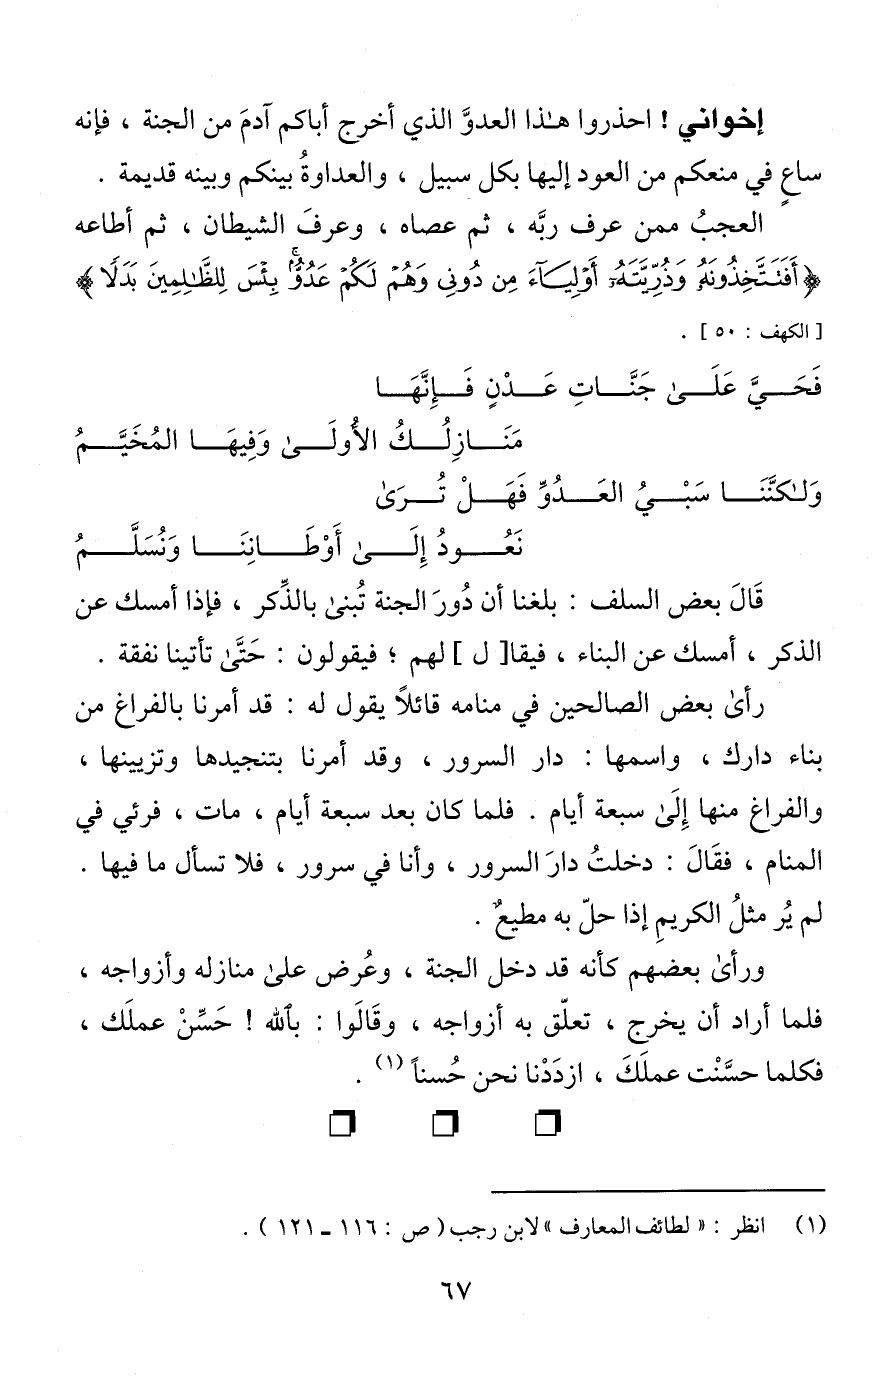 إخواني ! احذروا هـٰذا العدوَّ الذي أخرج أباكم آدمَ من الجنة ، فإنه
ساعٍ في منعكم من العود إليها بكل سبيل ، والعداوةُ بينكم وبينه قديمة .
العجبُ ممن عرف ربَّه ، ثم عصاه ، وعرفَ الشيطان ، ثم أطاعه
﴿ أَفَتَتَّخِذُونَهُۥ وَذُرِّيَّتَهُۥٓ أَوْلِيَآءَ مِن دُونِى وَهُمْ لَكُمْ عَدُوُّۢ ۚ بِئْسَ لِلظَّـٰلِمِينَ بَدَلًا ﴾
[ الكهف : ٥٠ ] .
فَحَيَّ عَلَىٰ جَنَّاتِ عَدْنٍ فَإِنَّهَا
مَنَازِلُكُ الأُولَىٰ وَفِيهَا المُخَيَّمُ
وَلـٰكِنَّنَا سَبْيُ العَدُوِّ فَهَلْ تُرَىٰ
نَعُودُ إِلَىٰ أَوْطَانِنَا وَنُسَلَّمُ
قَالَ بعض السلف : بلغنا أن دُورَ الجنة تُبنىٰ بالذِّكر ، فإذا أمسك عن
الذكر ، أمسك عن البناء ، فيقا[ ل ] لهم ؛ فيقولون : حَتَّىٰ تأتينا نفقة .
رأىٰ بعض الصالحين في منامه قائلاً يقول له : قد أمرنا بالفراغ من
بناء دارك ، واسمها : دار السرور ، وقد أمرنا بتنجيدها وتزيينها ،
والفراغ منها إِلَىٰ سبعة أيام . فلما كان بعد سبعة أيام ، مات ، فرئي في
المنام ، فقَالَ : دخلتُ دارَ السرور ، وأنا في سرور ، فلا تسأل ما فيها .
لم يُر مثلُ الكريمِ إذا حلّ به مطيعٌ .
ورأىٰ بعضهم كأنه قد دخل الجنة ، وعُرض علىٰ منازله وأزواجه ،
فلما أراد أن يخرج ، تعلّق به أزواجه ، وقَالُوا : بٱلله ! حَسِّنْ عملَك ،
فكلما حسَّنْت عملَكَ ، ازدَدْنا نحن حُسناً (١) .
(١) انظر : « لطائف المعارف » لابن رجب ( ص : ١١٦ ـ ١٢١ ) .
٦٧